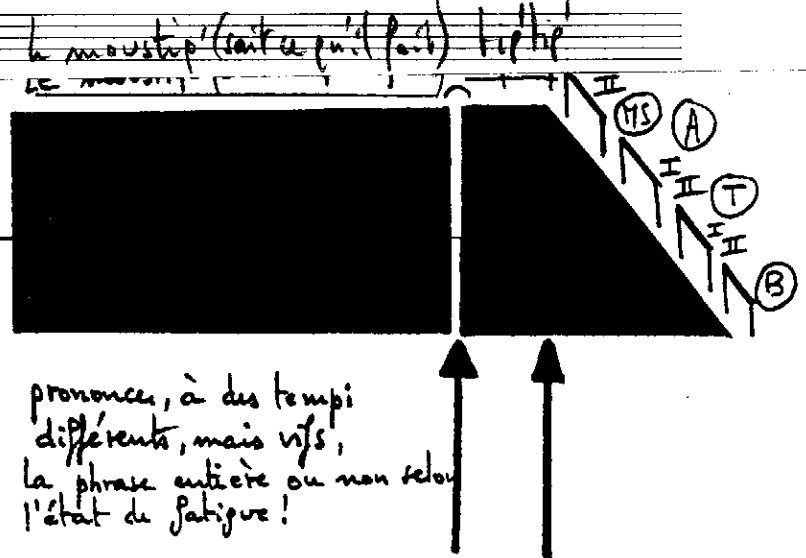 Le moustip' (sait ce qu'il fait) tip'tip'
Le
II
MS A
I
II T
I
II
B
prononcer, à des tempi
différents, mais vifs,
la phrase entière ou non selon
l'état de fatigue !